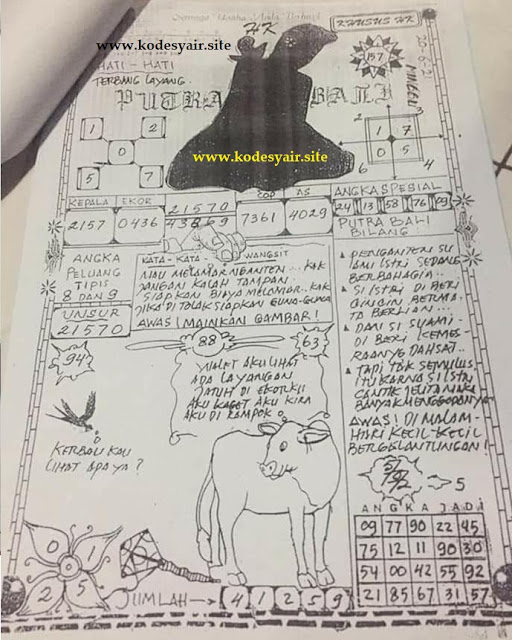 Semoga Usaha Anda Berhasil
HK
KHUSUS HK
www.kodesyair.site
HATI - HATI
TERBANG LAYANG.
PUTRA BALI
157
20-6-21
MINGGU
1 2
0
5 7
1 7
0 5
6 4
www.kodesyair.site
KEPALA EKOR 21570 COP AS
2157 0436 43869 7361 4029
ANGKA SPESIAL
24 13 58 76 89
PUTRA BALI
BILANG
ANGKA
PELUANG
TIPIS
8 DAN 9
UNSUR
21570
KATA - KATA - WANGSIT
MAU MELAMAR NGANTEN... KAK
JANGAN KALAH TAMPAN
SIAPKAN BIAYA MELAMAR.. KAK
JIKA DI TOLAK SIAPKAN GUNA-GUNA
AWAS! MAINKAN GAMBAR!
PENGANTEN SU
AMI ISTRI SEDANG
BERBAHAGIA..
SI ISTRI DI BERI
CINCIN BERMA
TA BERLIAN...
DAN SI SUAMI
DI BERI KEMES-
RAANYE DAHSAT..
TAPI TAK SEMULUS
ITU KARNA SI ISTRI
CANTIK JELITA NAKI
BANYAK MENGGODANYA
AWAS! DI MALAM-
HARI KECIL-KECIL
BERGELANTUNGAN!
94
88
63
YULET AKU LIHAT
ADA LAYANGAN
JATUH DI EKORKU
AKU KAGET AKU KIRA
AKU DI RAMPOK
KERBAU KAU
LIHAT APA YA?
5
ANGKA JADI
09 77 90 22 45
75 12 11 90 30
54 00 42 55 92
21 85 67 31 57
0 1
2 5
JUMLAH → 4 1 2 5 9